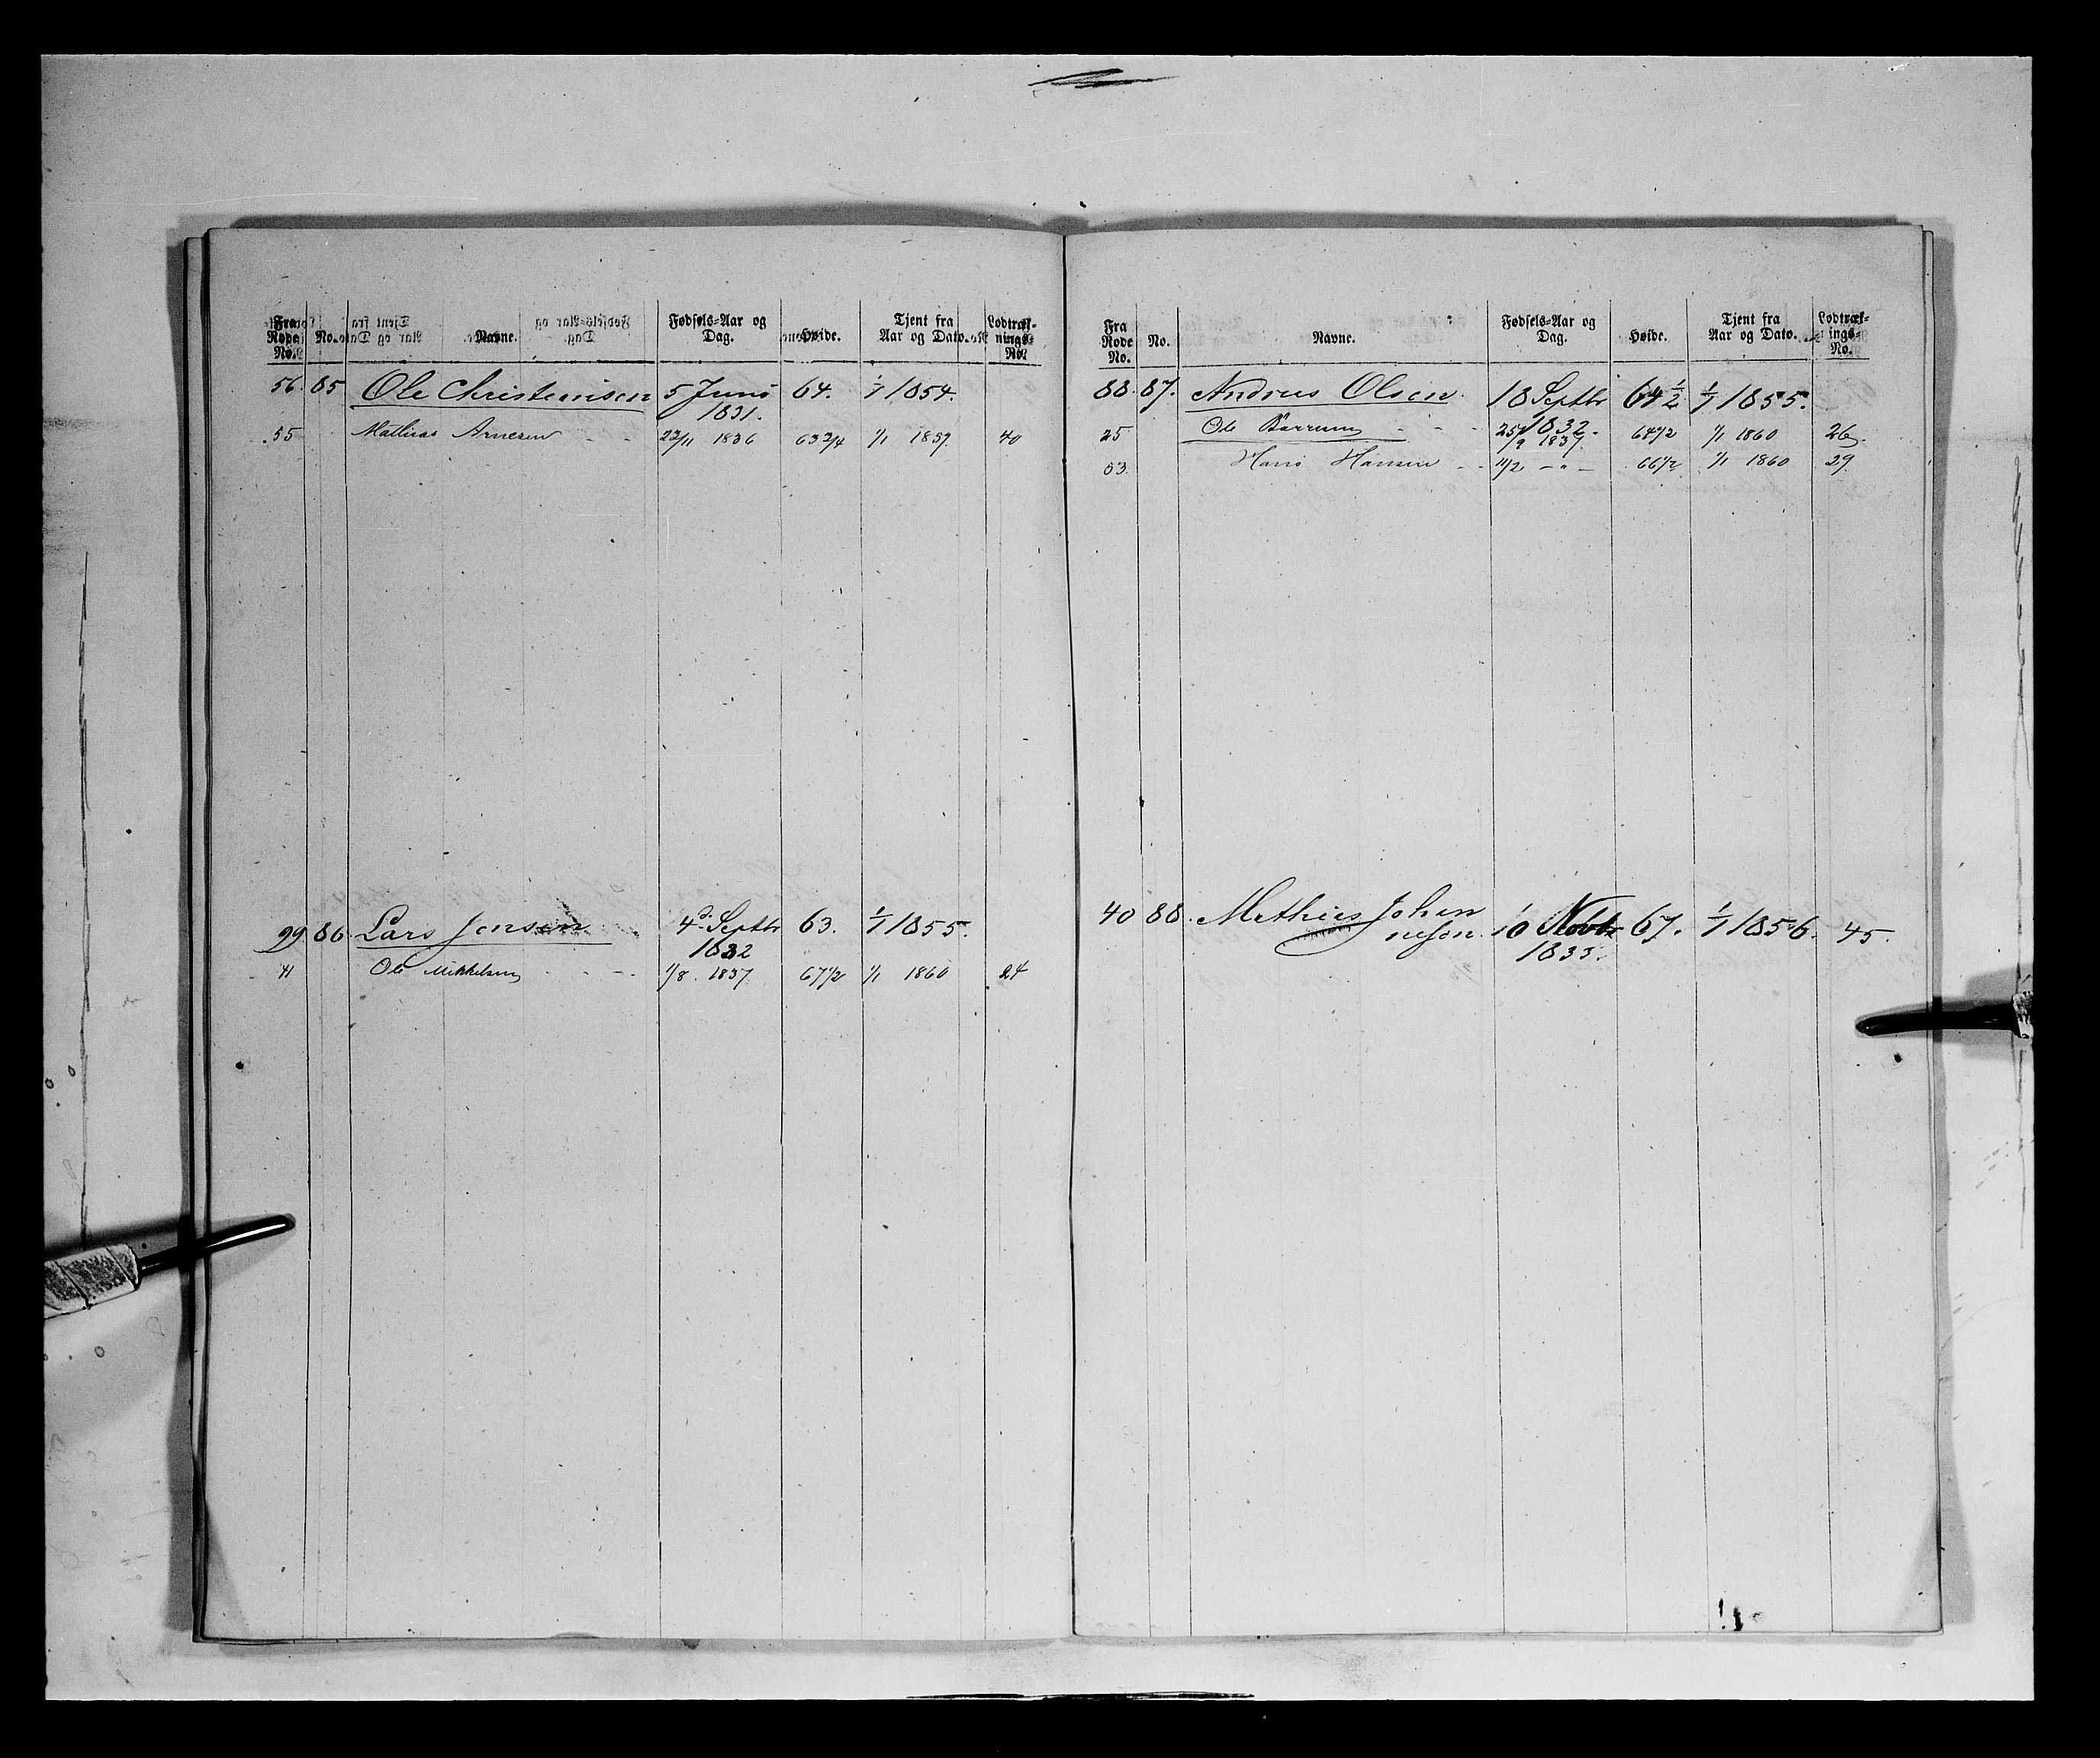 Fra Rode No. | No. | Navne. | Fødsels-Aar og Dag. | Høide. | Tjent fra Aar og Dato. | Lodtræk-nings-No.
56. 85 Ole Christensen 5 Juni 64. 1/7 1854.
1831.
55 Mathias Arnesen - - 22/11 1836 63 3/4 1/1 1859 40
29 86 Lars Jensen 4d. Septbr 63. 1/7 1855.
1832
41 Ole Mikkelsen - - - 1/8. 1837 67 1/2 1/1 1860 24
Fra Rode No. | No. | Navne. | Fødsels-Aar og Dag. | Høide. | Tjent fra Aar og Dato. | Lodtræk-nings-No.
88. 87. Andreas Olsen. 18 Septbr 64 1/2 1/7 1855.
1832.
25 Ole - - - 25/9 1837. 64 1/2 1/1 1860 26.
53. Hans Hansen - - 11/2 - " - 66 1/2 1/1 1860 29
40 88. Mathias Johan
nesen. 10 Novbr 67. 1/7 1856. 45.
1833.